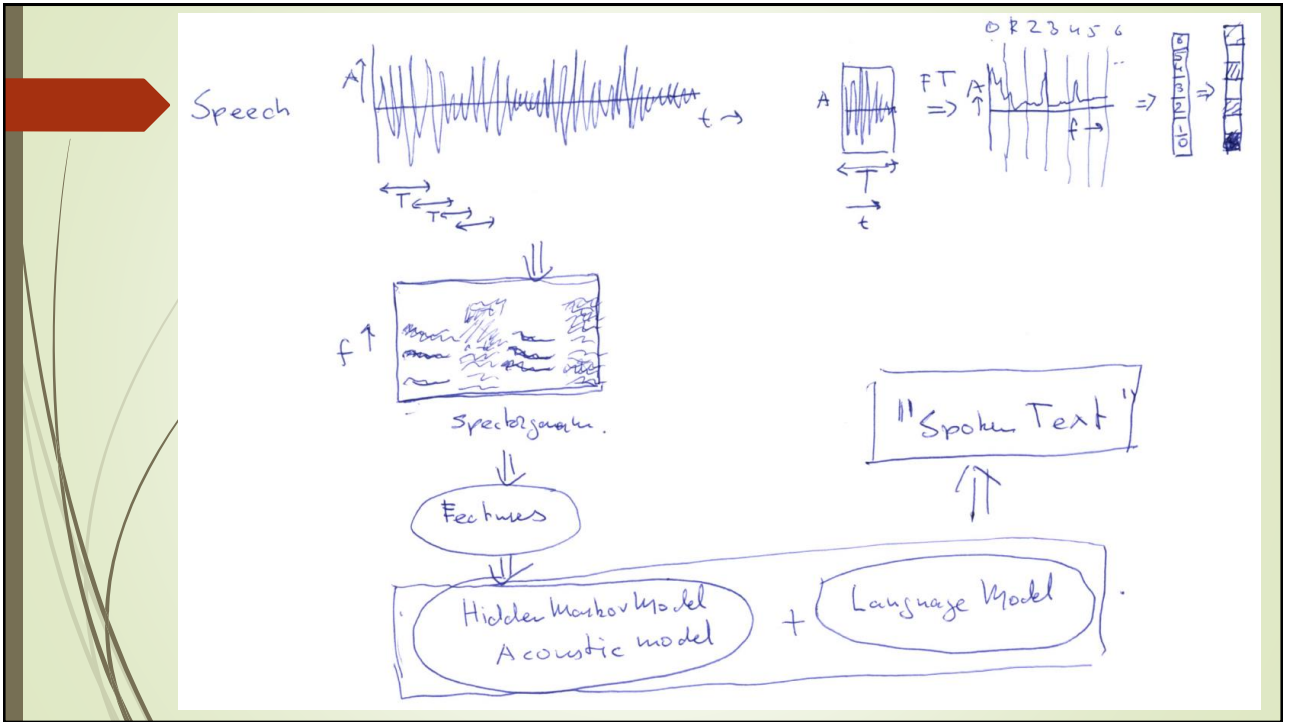 Speech
A
t
T
T
A
T
t
FT
A
f
0 1 2 3 4 5 6
6
5
4
3
2
1
0
f
Spectrogram.
Features
Hidden Markov Model
Acoustic model
+
Language Model
"Spoken Text"